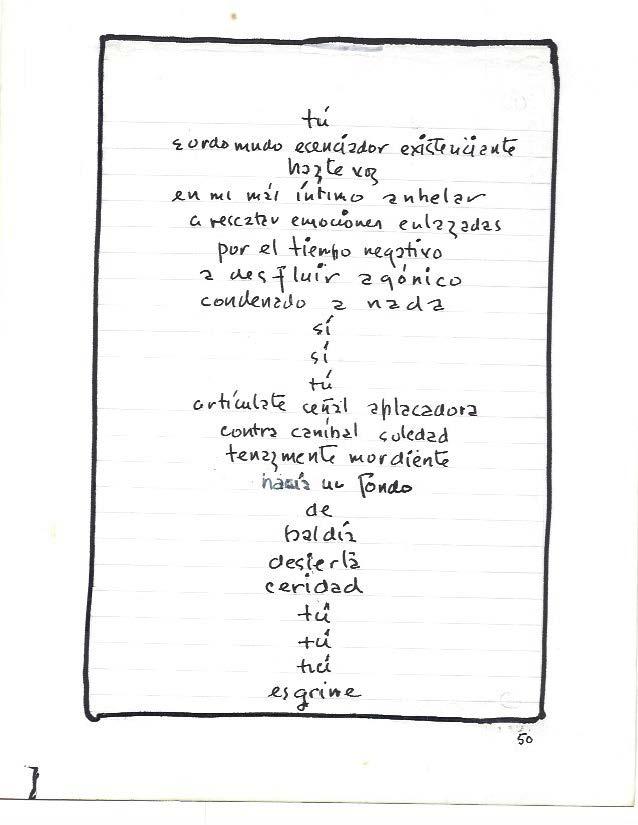 tú
sordomudo esenciador existenciante
hazte voz
en mi más íntimo anhelar
a rescatar emociones enlazadas
por el tiempo negativo
a desfluir agónico
condenado a nada
sí
sí
tú
artículate señal aplacadora
contra caníbal soledad
tenazmente mordiente
hacia un fondo
de
baldía
desierta
ceridad
tú
tú
tú
esgrime
50